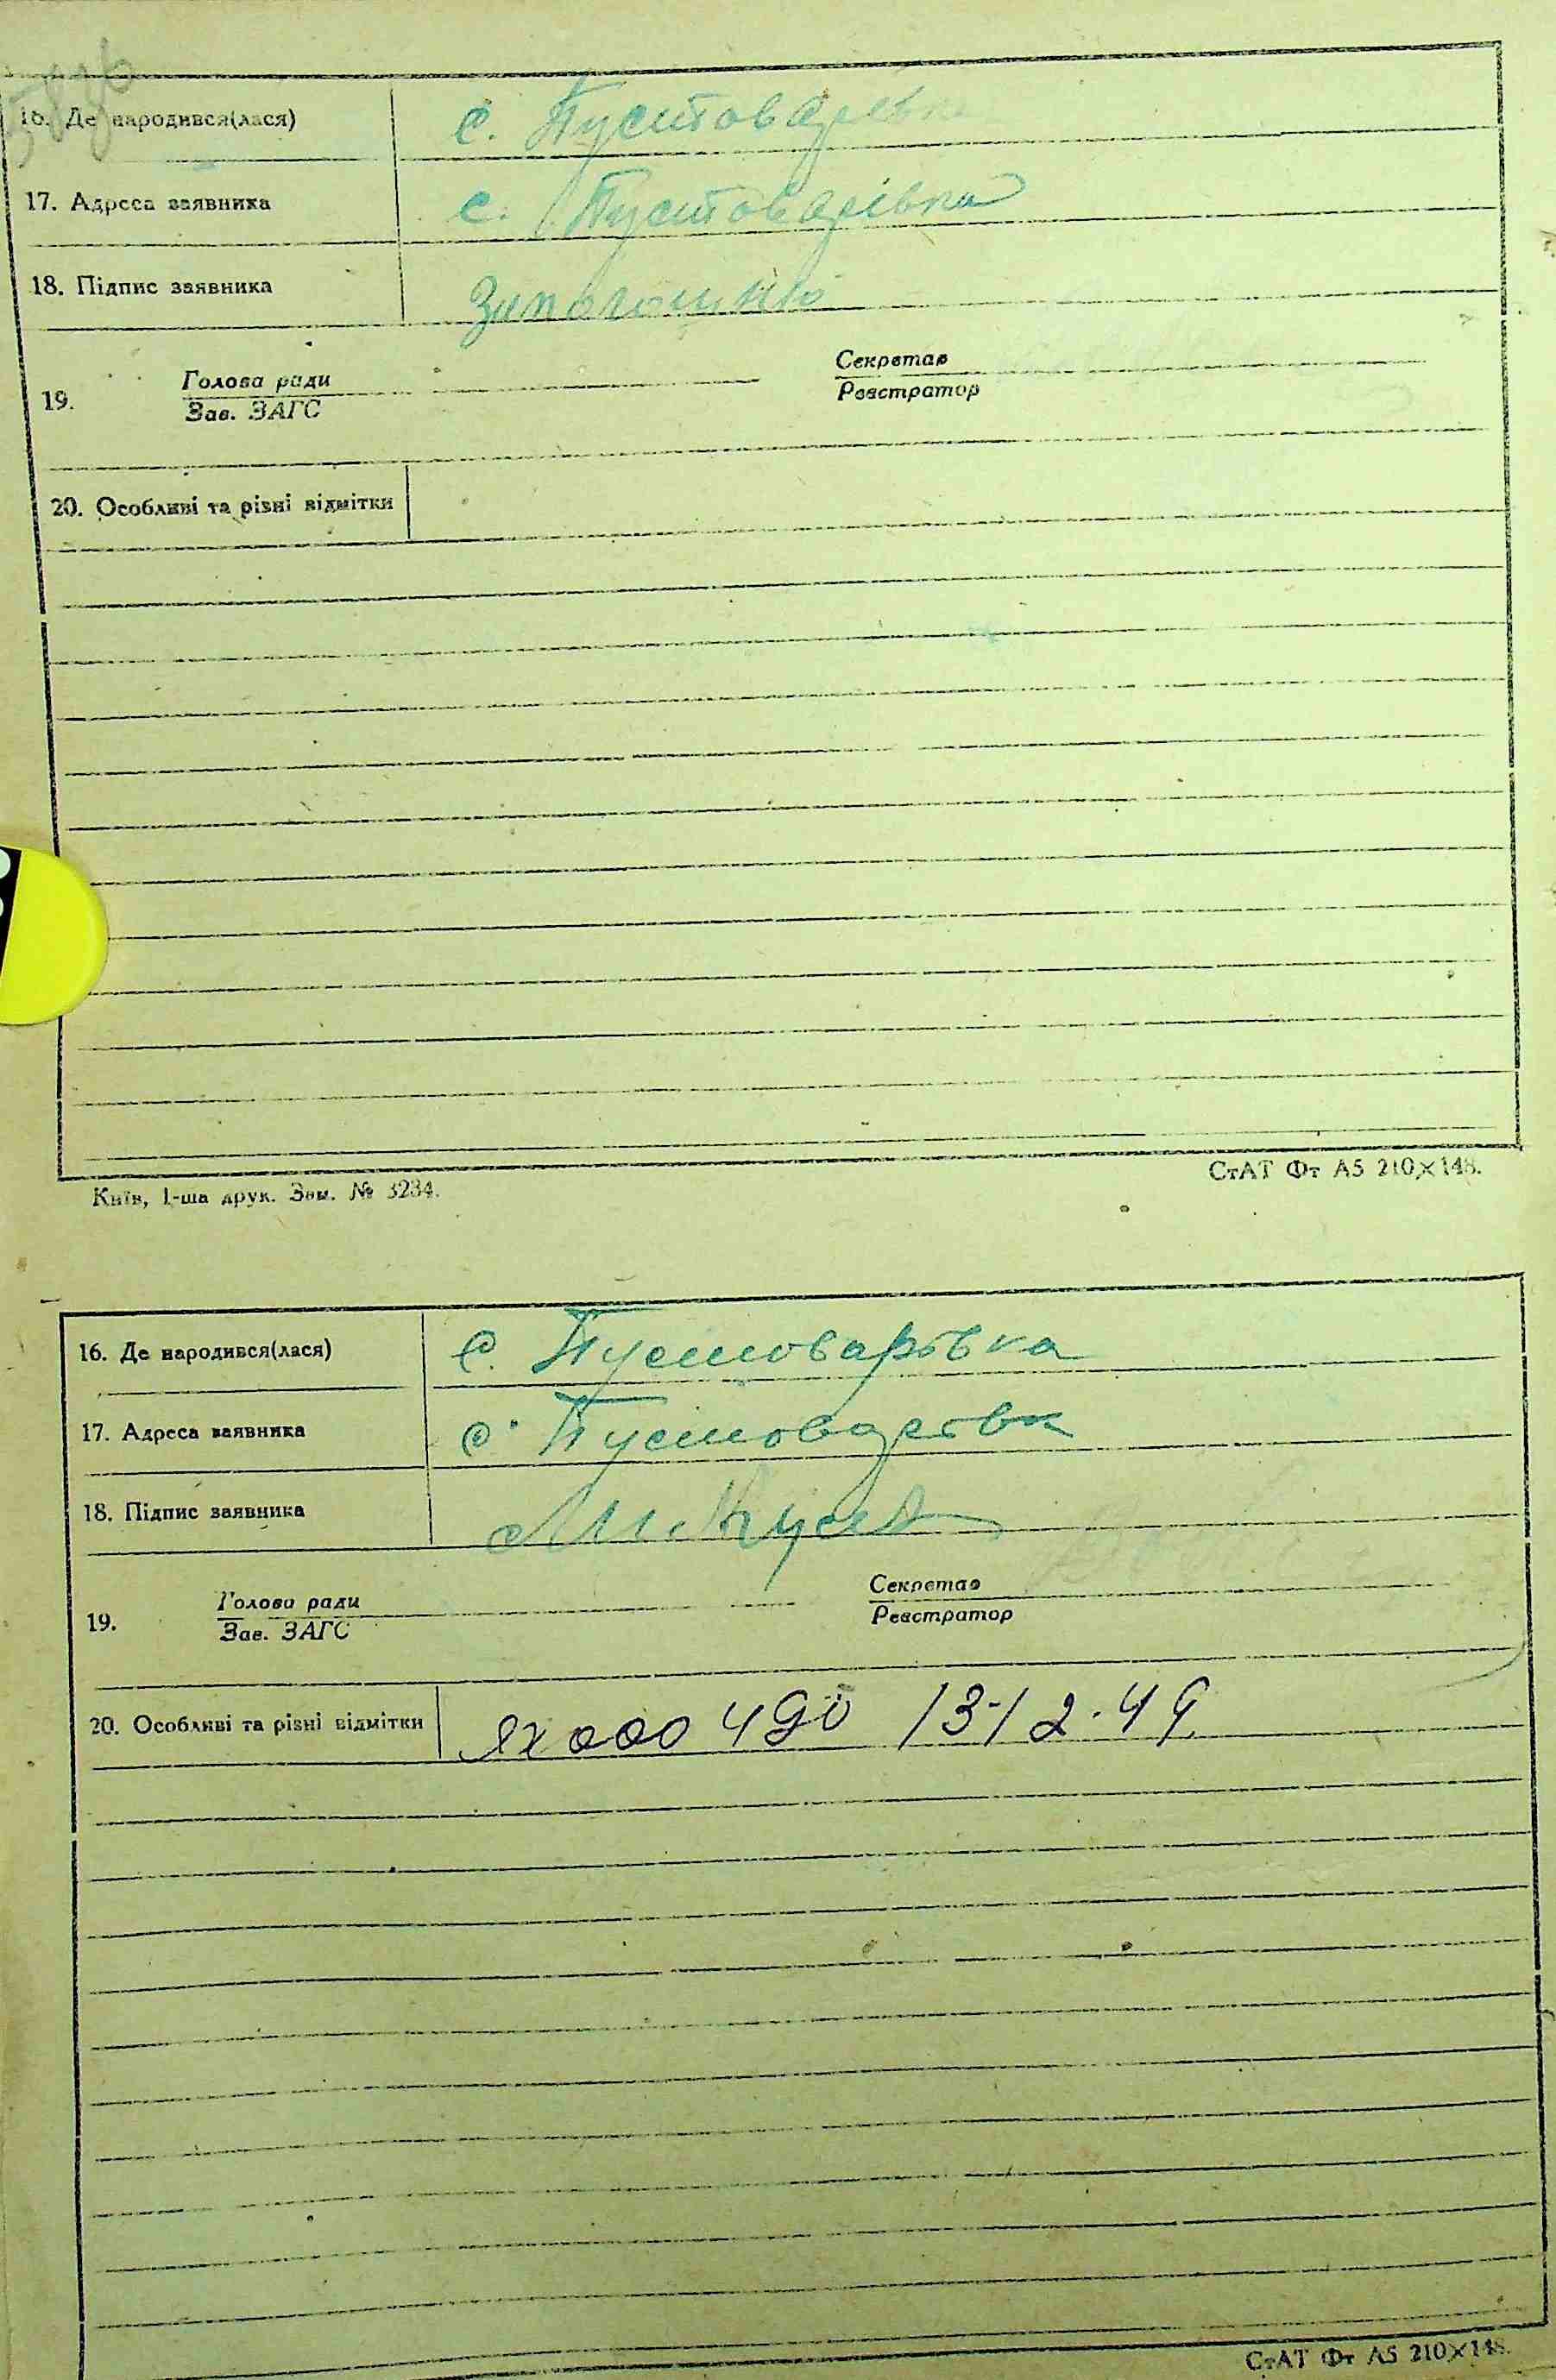 16. Де народився(лася) с. Пустоварівка
17. Адреса заявника с. Пустоварівка
18. Підпис заявника
Голова ради Секретар
19.
Зав. ЗАГС Реєстратор
20. Особливі та різні відмітки
Київ, 1-ша друк. Зам. № 3234. СтАТ Фт А5 210×148.
16. Де народився(лася) с. Пустоварівка
17. Адреса заявника с. Пустоварівк
18. Підпис заявника
Голова ради Секретар
19.
Зав. ЗАГС Реєстратор
20. Особливі та різні відмітки ЯХ 000490 13-12-49
СтАТ Фт А5 210×148.